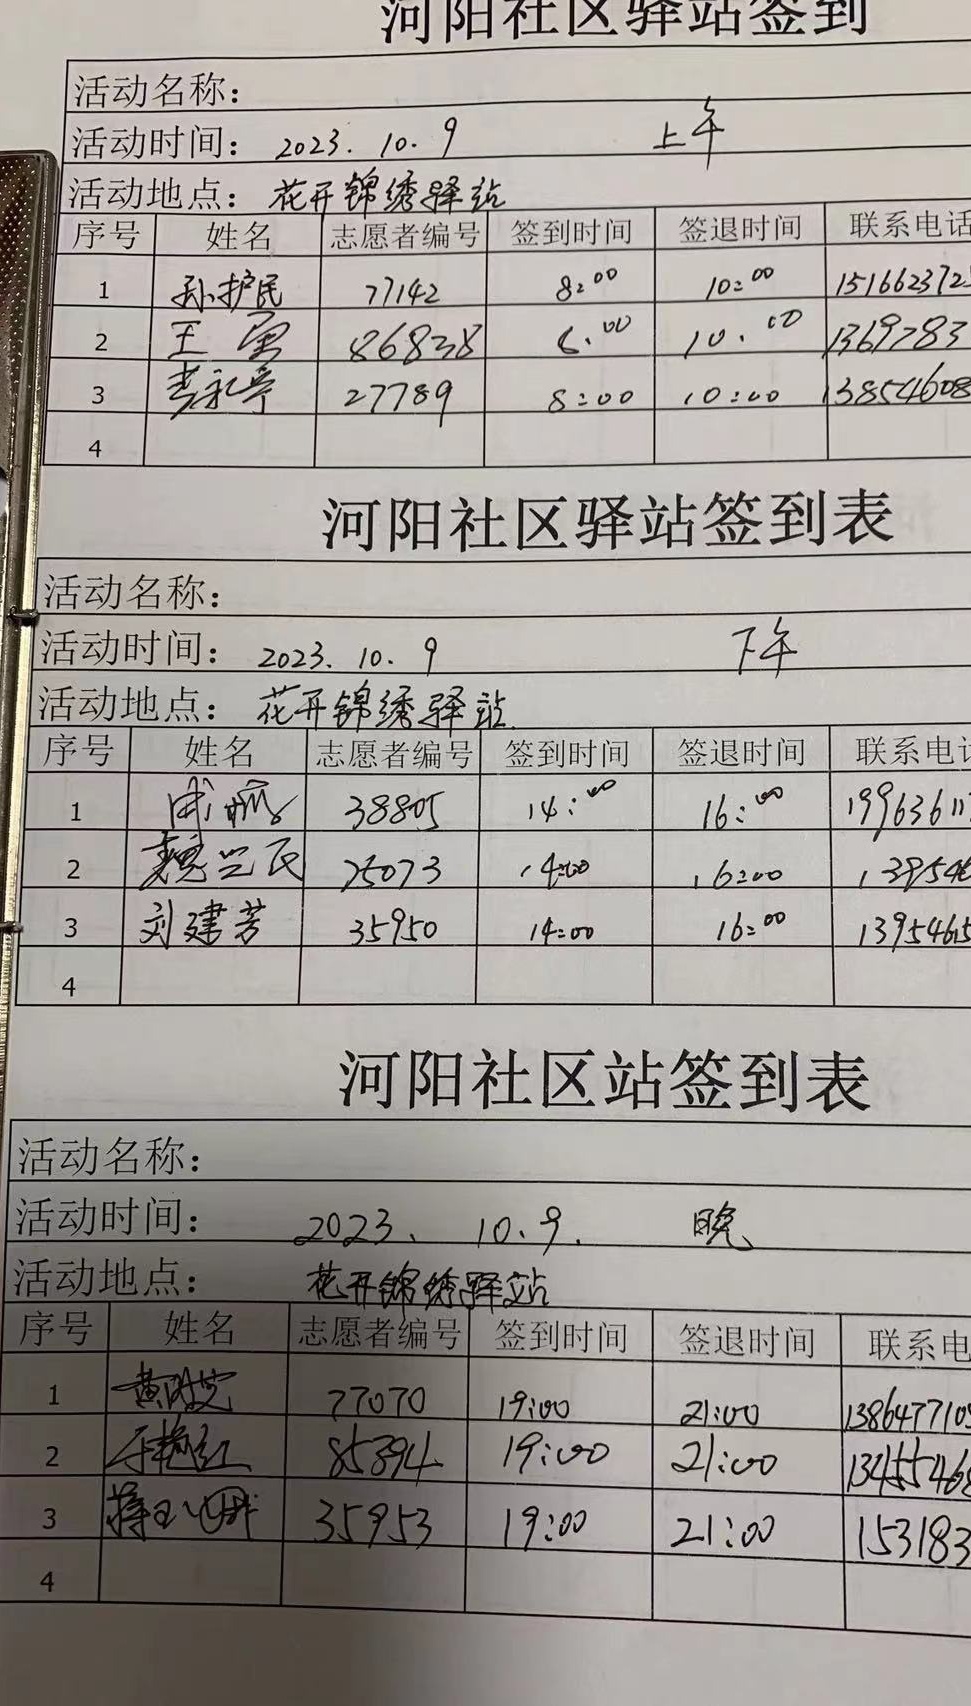 河阳社区驿站签到
活动名称：
活动时间：2023.10.9 上午
活动地点：花开锦绣驿站
序号 姓名 志愿者编号 签到时间 签退时间 联系电话
1 孙护民 77142 8:00 10:00 151662372
2 王 86838 8:00 10:00 1369783
3 27789 8:00 10:00 13854608
4
河阳社区驿站签到表
活动名称：
活动时间：2023.10.9 下午
活动地点：花开锦绣驿站
序号 姓名 志愿者编号 签到时间 签退时间 联系电话
1 38805 14:00 16:00 19963611
2 魏兰民 25073 14:00 16:00 139546
3 刘建芳 35950 14:00 16:00 1395465
4
河阳社区站签到表
活动名称：
活动时间：2023.10.9. 晚
活动地点：花开锦绣驿站
序号 姓名 志愿者编号 签到时间 签退时间 联系电
1 77070 19:00 21:00 1386477105
2 于艳红 85394 19:00 21:00 13455468
3 35953 19:00 21:00 153183
4